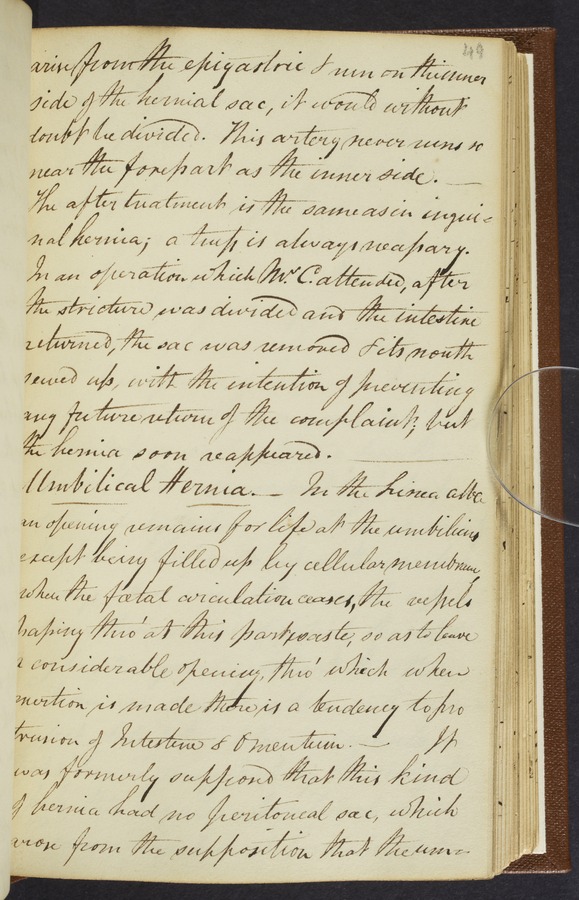 49
arise from the epigastric & run on the inner
side of the hernial sac, it would without
doubt be divided. This artery never runs so
near the forepart as the inner side. —
The after treatment is the same as in ingui=
nal hernia; a truss is always necessary.
In an operation which Mr. C. attended, after
the stricture was divided and the intestine
returned, the sac was removed & its mouth
sewed up, with the intention of preventing
any future return of the complaint; but
the hernia soon reappeared. —
Umbilical Hernia. — In the Linea alba
an opening remains for life at the umbilicus
except being filled up by cellular membrane,
when the fœtal circulation ceases, the vessels
passing thro' at this part waste, so as to leave
a considerable opening, thro' which when
exertion is made there is a tendency to pro
trusion of Intestine & Omentum. — It
was formerly supposed that this kind
of hernia had no peritoneal sac, which
arose from the supposition that the um=